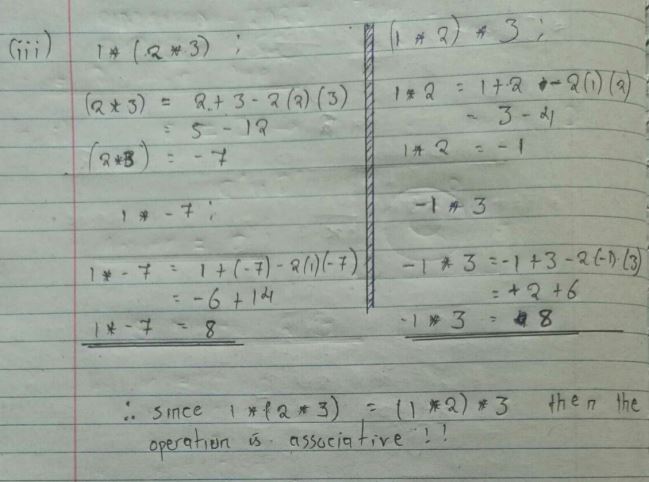 (iii) 1 * (2 * 3) ;
(2 * 3) = 2 + 3 - 2(2)(3)
= 5 - 12
(2*3) = -7
1 * -7 ;
1 * -7 = 1 + (-7) - 2(1)(-7)
= -6 + 14
1 * -7 = 8
(1 * 2) * 3 ;
1 * 2 = 1 + 2 - 2(1)(2)
= 3 - 4
1 * 2 = -1
-1 * 3
-1 * 3 = -1 + 3 - 2(-1)(3)
= +2 + 6
-1 * 3 = 8
∴ since 1 * (2 * 3) = (1 * 2) * 3 then the
operation is associative !!